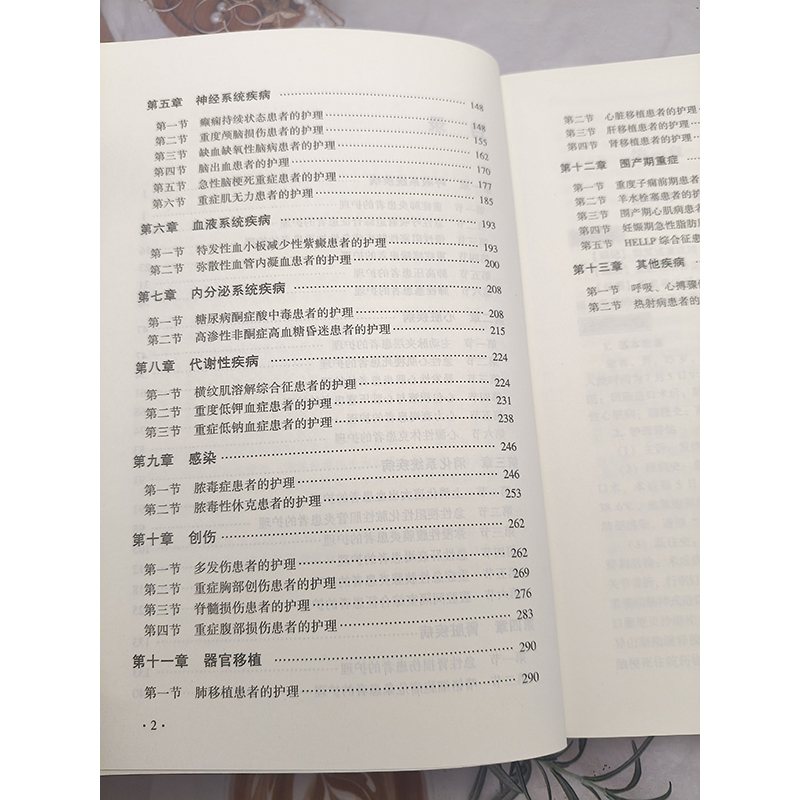 第五章 神经系统疾病 148
第一节 癫痫持续状态患者的护理 148
第二节 重度颅脑损伤患者的护理 155
第三节 缺血缺氧性脑病患者的护理 162
第四节 脑出血患者的护理 170
第五节 急性脑梗死重症患者的护理 177
第六节 重症肌无力患者的护理 185
第六章 血液系统疾病 193
第一节 特发性血小板减少性紫癜患者的护理 193
第二节 弥散性血管内凝血患者的护理 200
第七章 内分泌系统疾病 208
第一节 糖尿病酮症酸中毒患者的护理 208
第二节 高渗性非酮症高血糖昏迷患者的护理 215
第八章 代谢性疾病 224
第一节 横纹肌溶解综合征患者的护理 224
第二节 重度低钾血症患者的护理 231
第三节 重症低钠血症患者的护理 238
第九章 感染 246
第一节 脓毒症患者的护理 246
第二节 脓毒性休克患者的护理 253
第十章 创伤 262
第一节 多发伤患者的护理 262
第二节 重症胸部创伤患者的护理 269
第三节 脊髓损伤患者的护理 276
第四节 重症腹部损伤患者的护理 283
第十一章 器官移植 290
第一节 肺移植患者的护理 290
·2·
第二节 心脏移植患者的护理
第三节 肝移植患者的护理
第四节 肾移植患者的护理
第十二章 围产期重症
第一节 重度子痫前期患者
第二节 羊水栓塞患者的护
第三节 围产期心肌病患者
第四节 妊娠期急性脂肪肝
第五节 HELLP 综合征患
第十三章 其他疾病
第一节 呼吸、心搏骤
第二节 热射病患者的